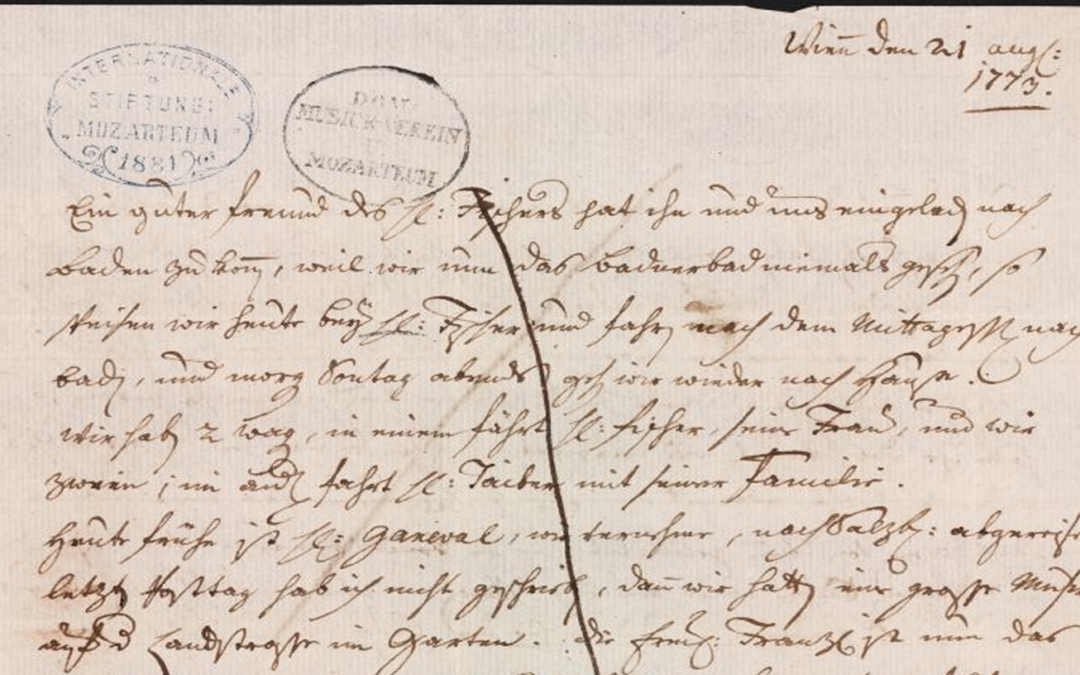 Wienn den 21 aug:
1773.
INTERNATIONALE
STIFTUNG:
MOZARTEUM
1881
DOM-
MUSIK-VEREIN
U
MOZARTEUM
Ein guter freund des H: Fischers hat ihn und uns eingelad nach
Baden zu kom̅, weil wir nun das badnerbad niemals geseh, so
speisen wir heute bey H: Fischer und fahrn nach dem Mittagessen nach
bad, und morg Sontag abends geh wir wieder nach Hause.
wir hab 2 wag, in einem fährt H: fischer, seine Frau, und wir
zween; im and fahrt H: Taiber mit seiner Familie.
Heute frühe ist H: Ganeval, wie vernehme, nach Salzb: abgereise
letzt Posttag hab ich nicht geschrieb, dan̅ wir hatt eine grosse Musi
auf d Landstrasse im Garten. die freul: Franzl ist nun das